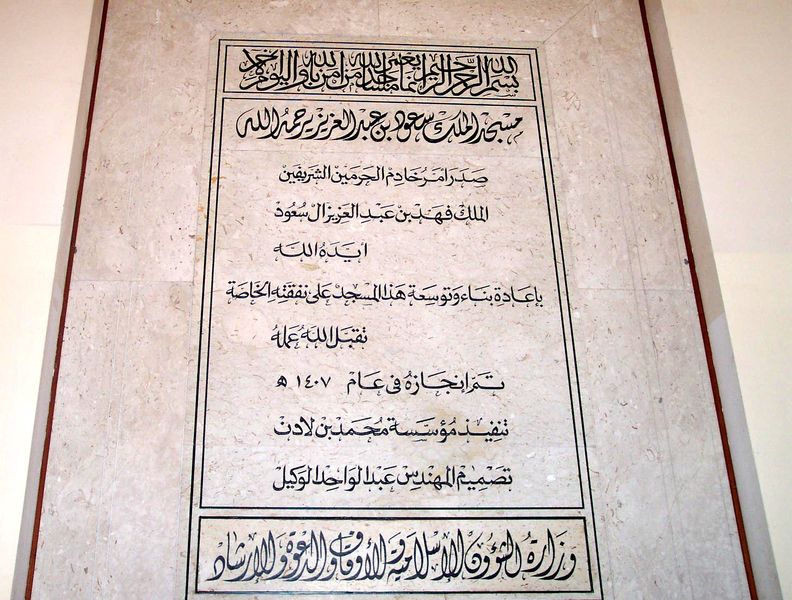 بسم الله الرحمن الرحيم إنما يعمر مساجد الله من آمن بالله واليوم الآخر
مسجد الملك سعود بن عبد العزيز يرحمه الله
صدر أمر خادم الحرمين الشريفين
الملك فهد بن عبد العزيز آل سعود
ايده الله
بإعادة بناء وتوسعة هذا المسجد على نفقته الخاصة
تقبل الله عمله
تم إنجازه في عام ١٤٠٧ هـ
تنفيذ مؤسسة محمد بن لادن
تصميم المهندس عبد الواحد الوكيل
وزارة الشؤون الإسلامية والأوقاف والدعوة والإرشاد